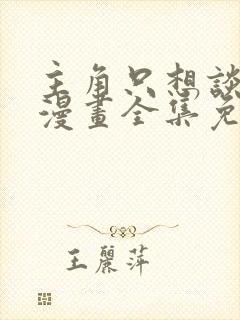 主角只想談
漫畫全集免
王麗萍